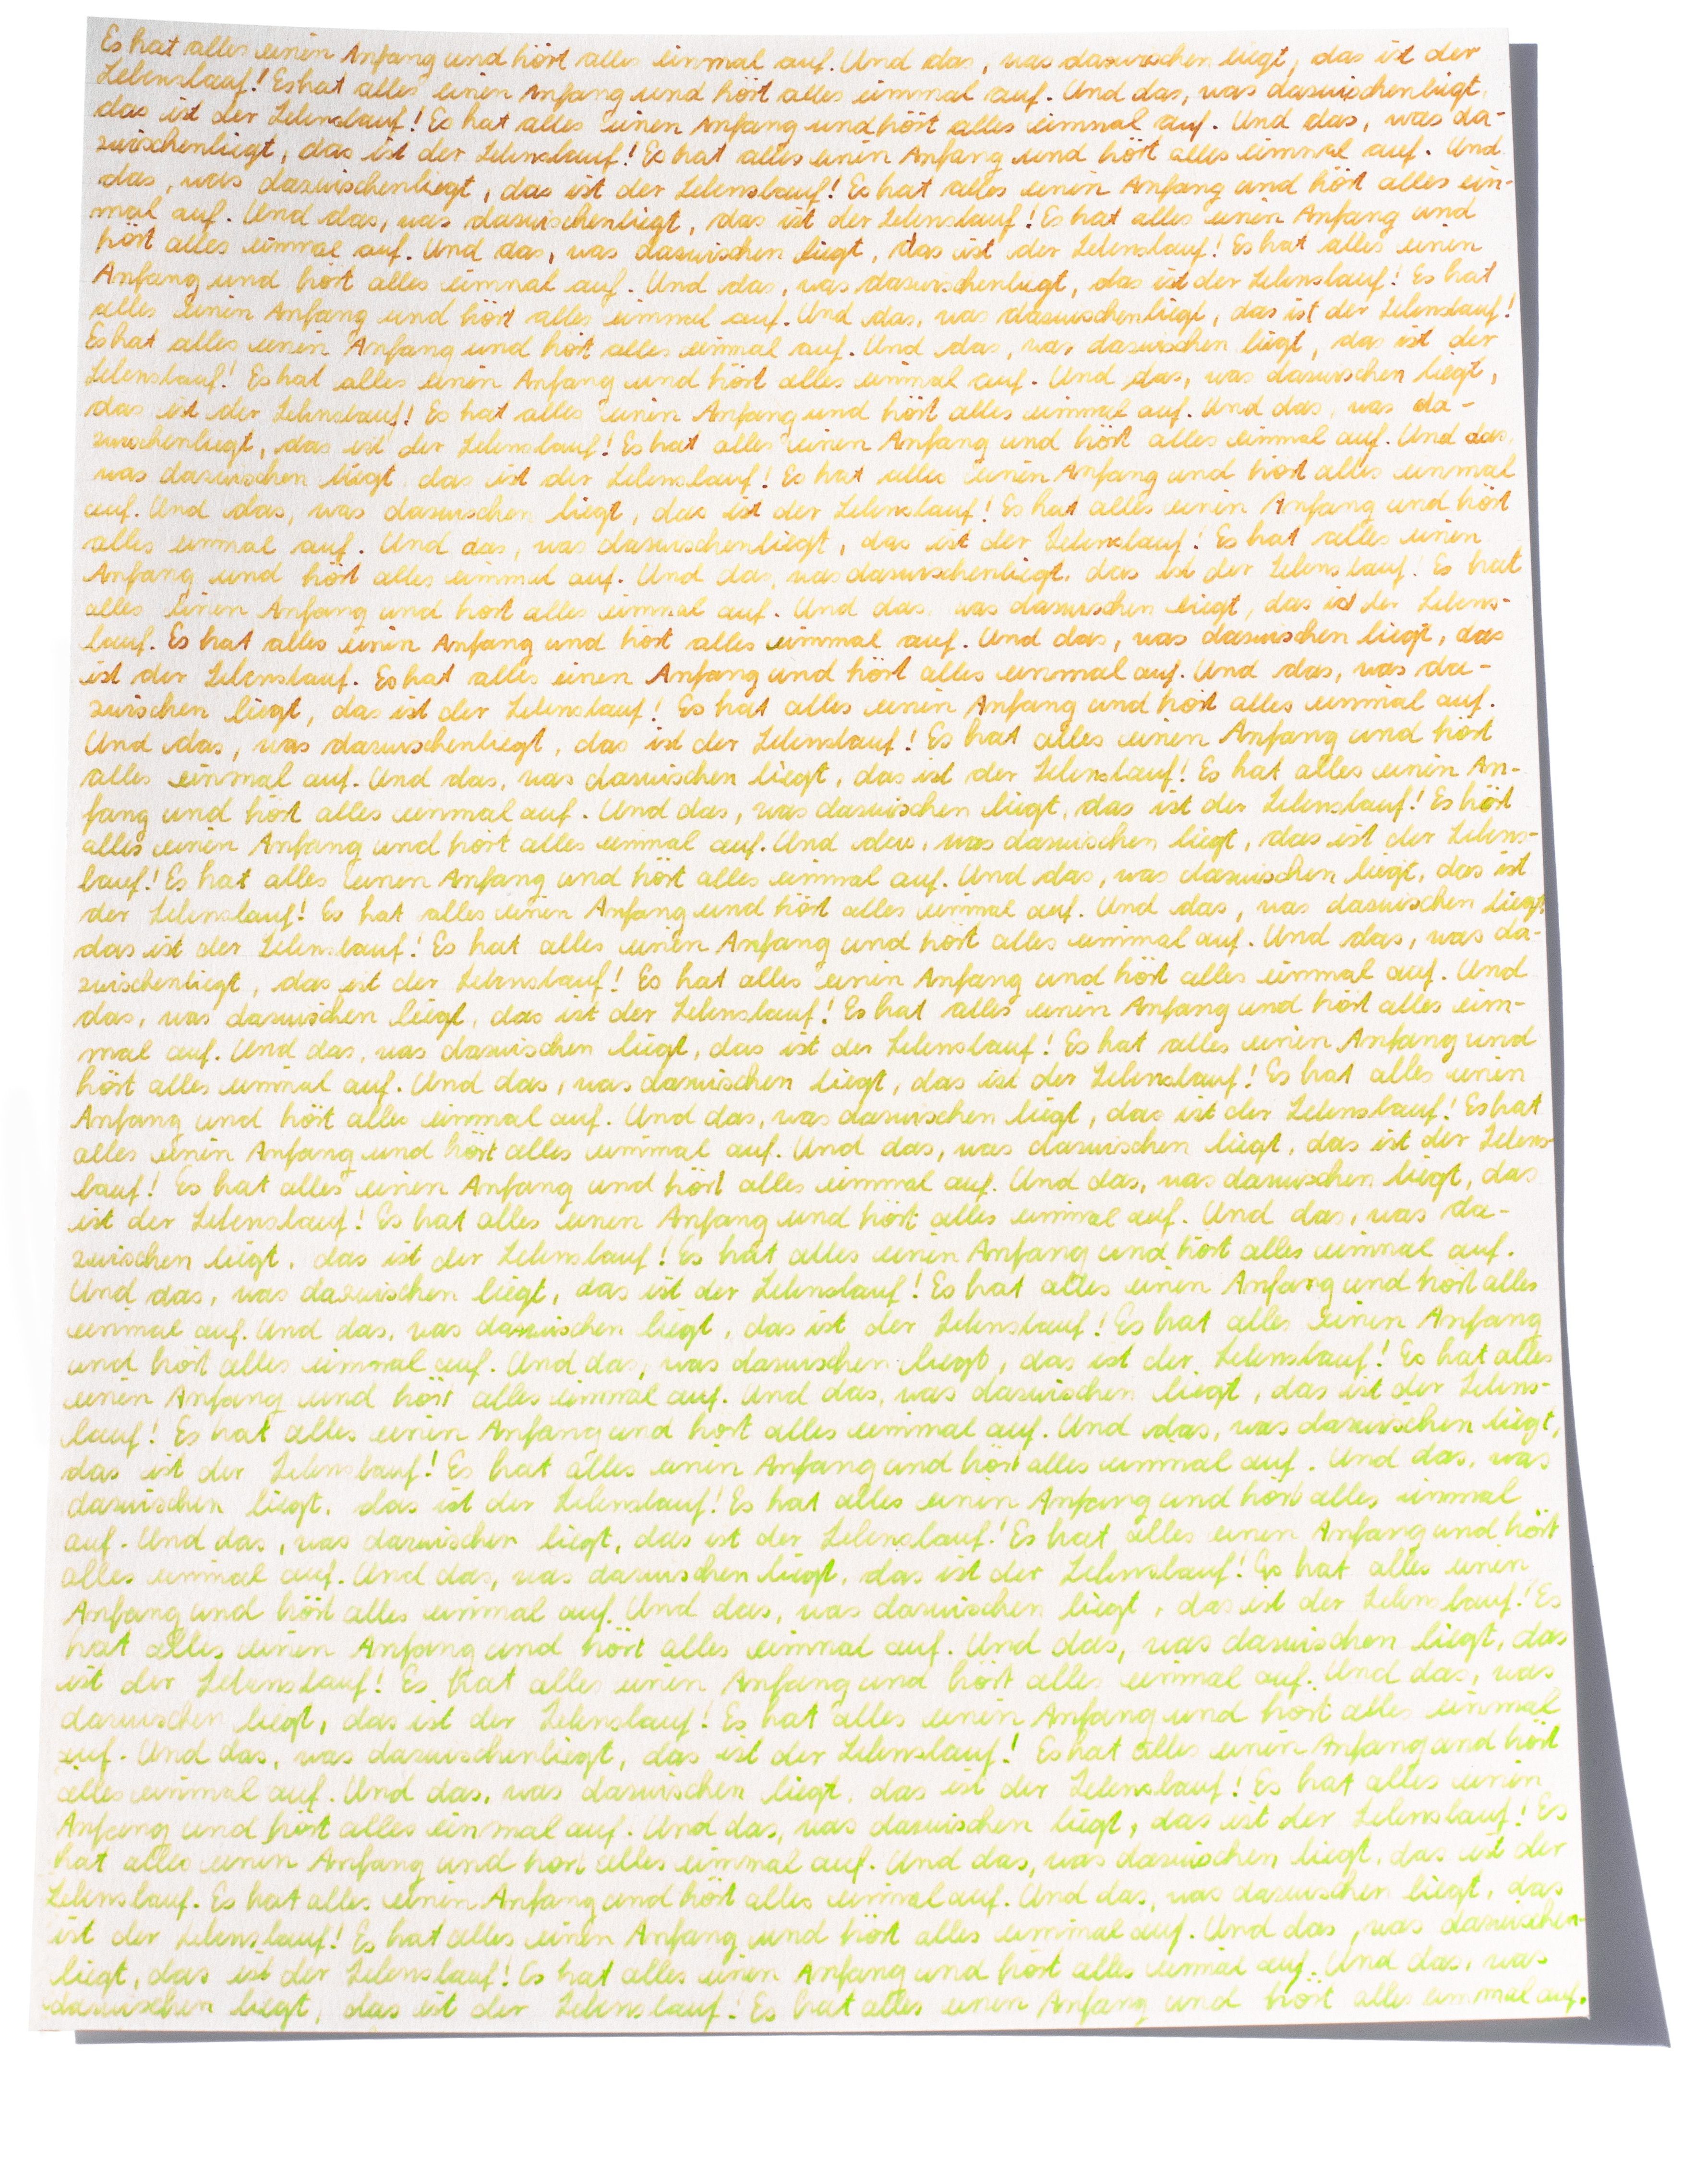 Es hat alles einen Anfang und hört alles einmal auf. Und das, was dazwischen liegt, das ist der
Lebenslauf! Es hat alles einen Anfang und hört alles einmal auf. Und das, was dazwischenliegt,
das ist der Lebenslauf! Es hat alles einen Anfang und hört alles einmal auf. Und das, was da-
zwischenliegt, das ist der Lebenslauf! Es hat alles einen Anfang und hört alles einmal auf. Und
das, was dazwischenliegt, das ist der Lebenslauf! Es hat alles einen Anfang und hört alles ein-
mal auf. Und das, was dazwischenliegt, das ist der Lebenslauf! Es hat alles einen Anfang und
hört alles einmal auf. Und das, was dazwischen liegt, das ist der Lebenslauf! Es hat alles einen
Anfang und hört alles einmal auf. Und das, was dazwischenliegt, das ist der Lebenslauf! Es hat
alles einen Anfang und hört alles einmal auf. Und das, was dazwischenliegt, das ist der Lebenslauf!
Es hat alles einen Anfang und hört alles einmal auf. Und das, was dazwischen liegt, das ist der
Lebenslauf! Es hat alles einen Anfang und hört alles einmal auf. Und das, was dazwischen liegt,
das ist der Lebenslauf! Es hat alles einen Anfang und hört alles einmal auf. Und das, was da-
zwischenliegt, das ist der Lebenslauf! Es hat alles einen Anfang und hört alles einmal auf. Und das,
was dazwischen liegt, das ist der Lebenslauf! Es hat alles einen Anfang und hört alles einmal
auf. Und das, was dazwischen liegt, das ist der Lebenslauf! Es hat alles einen Anfang und hört
alles einmal auf. Und das, was dazwischenliegt, das ist der Lebenslauf! Es hat alles einen
Anfang und hört alles einmal auf. Und das, was dazwischenliegt, das ist der Lebenslauf! Es hat
alles einen Anfang und hört alles einmal auf. Und das, was dazwischen liegt, das ist der Lebens-
lauf. Es hat alles einen Anfang und hört alles einmal auf. Und das, was dazwischen liegt, das
ist der Lebenslauf. Es hat alles einen Anfang und hört alles einmal auf. Und das, was da-
zwischen liegt, das ist der Lebenslauf! Es hat alles einen Anfang und hört alles einmal auf.
Und das, was dazwischenliegt, das ist der Lebenslauf! Es hat alles einen Anfang und hört
alles einmal auf. Und das, was dazwischen liegt, das ist der Lebenslauf! Es hat alles einen An-
fang und hört alles einmal auf. Und das, was dazwischen liegt, das ist der Lebenslauf! Es hört
alles einen Anfang und hört alles einmal auf. Und das, was dazwischen liegt, das ist der Lebens-
lauf! Es hat alles einen Anfang und hört alles einmal auf. Und das, was dazwischen liegt, das ist
der Lebenslauf! Es hat alles einen Anfang und hört alles einmal auf. Und das, was dazwischen liegt,
das ist der Lebenslauf! Es hat alles einen Anfang und hört alles einmal auf. Und das, was da-
zwischenliegt, das ist der Lebenslauf! Es hat alles einen Anfang und hört alles einmal auf. Und
das, was dazwischen liegt, das ist der Lebenslauf! Es hat alles einen Anfang und hört alles ein-
mal auf. Und das, was dazwischen liegt, das ist der Lebenslauf! Es hat alles einen Anfang und
hört alles einmal auf. Und das, was dazwischen liegt, das ist der Lebenslauf! Es hat alles einen
Anfang und hört alles einmal auf. Und das, was dazwischen liegt, das ist der Lebenslauf! Es hat
alles einen Anfang und hört alles einmal auf. Und das, was dazwischen liegt, das ist der Lebens-
lauf! Es hat alles einen Anfang und hört alles einmal auf. Und das, was dazwischen liegt, das
ist der Lebenslauf! Es hat alles einen Anfang und hört alles einmal auf. Und das, was da-
zwischen liegt, das ist der Lebenslauf! Es hat alles einen Anfang und hört alles einmal auf.
Und das, was dazwischen liegt, das ist der Lebenslauf! Es hat alles einen Anfang und hört alles
einmal auf. Und das, was dazwischen liegt, das ist der Lebenslauf! Es hat alles einen Anfang
und hört alles einmal auf. Und das, was dazwischen liegt, das ist der Lebenslauf! Es hat alles
einen Anfang und hört alles einmal auf. Und das, was dazwischen liegt, das ist der Lebens-
lauf! Es hat alles einen Anfang und hört alles einmal auf. Und das, was dazwischen liegt,
das ist der Lebenslauf! Es hat alles einen Anfang und hört alles einmal auf. Und das, was
dazwischen liegt, das ist der Lebenslauf! Es hat alles einen Anfang und hört alles einmal
auf. Und das, was dazwischen liegt, das ist der Lebenslauf! Es hat alles einen Anfang und hört
alles einmal auf. Und das, was dazwischen liegt, das ist der Lebenslauf! Es hat alles einen
Anfang und hört alles einmal auf. Und das, was dazwischen liegt, das ist der Lebenslauf! Es
hat alles einen Anfang und hört alles einmal auf. Und das, was dazwischen liegt, das
ist der Lebenslauf! Es hat alles einen Anfang und hört alles einmal auf. Und das, was
dazwischen liegt, das ist der Lebenslauf! Es hat alles einen Anfang und hört alles einmal
auf. Und das, was dazwischenliegt, das ist der Lebenslauf! Es hat alles einen Anfang und hört
alles einmal auf. Und das, was dazwischen liegt, das ist der Lebenslauf! Es hat alles einen
Anfang und hört alles einmal auf. Und das, was dazwischen liegt, das ist der Lebenslauf! Es
hat alles einen Anfang und hört alles einmal auf. Und das, was dazwischen liegt, das ist der
Lebenslauf. Es hat alles einen Anfang und hört alles einmal auf. Und das, was dazwischen liegt, das
ist der Lebenslauf! Es hat alles einen Anfang und hört alles einmal auf. Und das, was dazwischen-
liegt, das ist der Lebenslauf! Es hat alles einen Anfang und hört alles einmal auf. Und das, was
dazwischen liegt, das ist der Lebenslauf! Es hat alles einen Anfang und hört alles einmal auf.